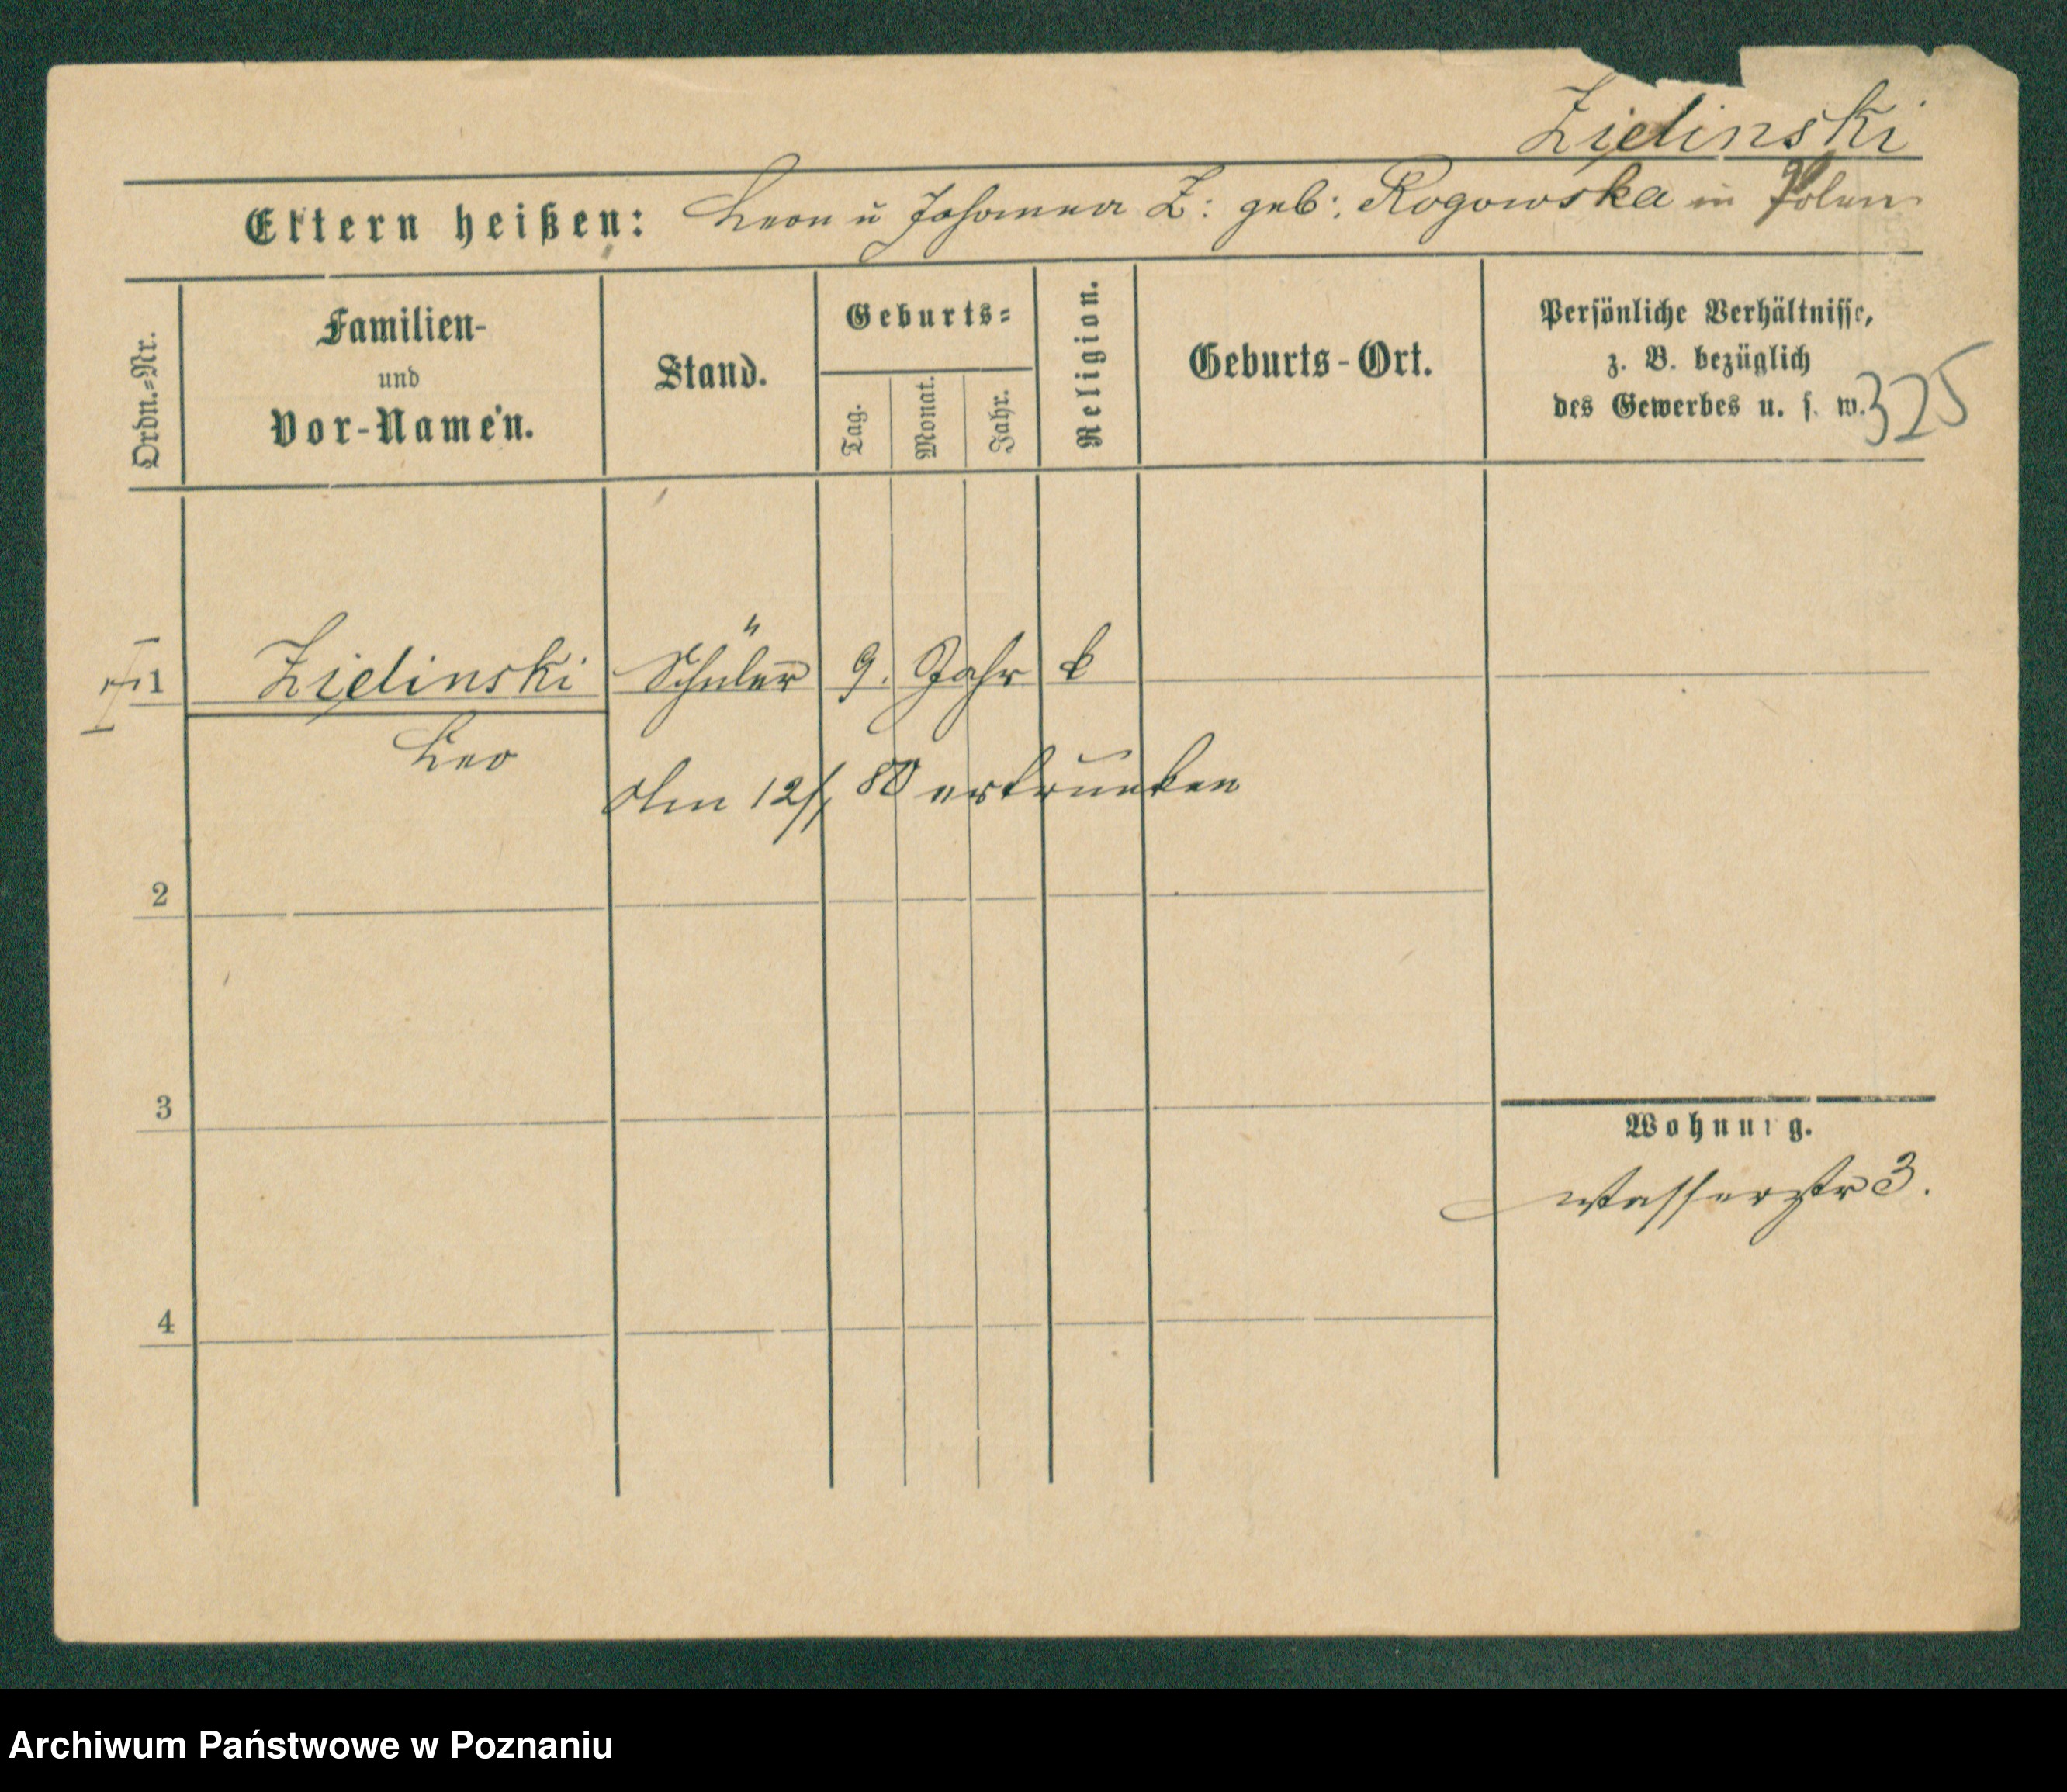 Zielinski
Eltern heißen: Leon u Johanna Z: geb: Rogowska in Polen
Ordn.=Nr.
Familien-
und
Vor-Namen.
Stand.
Geburts=
Tag.
Monat.
Jahr.
Religion.
Geburts-Ort.
Persönliche Verhältnisse,
z. B. bezüglich
des Gewerbes u. s. w.
325
1 Zielinski Schüler 9. Jahr k
Leo
Am 12/1 80 ertrunken
2
3
Wohnung.
Wasserstr 3.
4
Archiwum Państwowe w Poznaniu